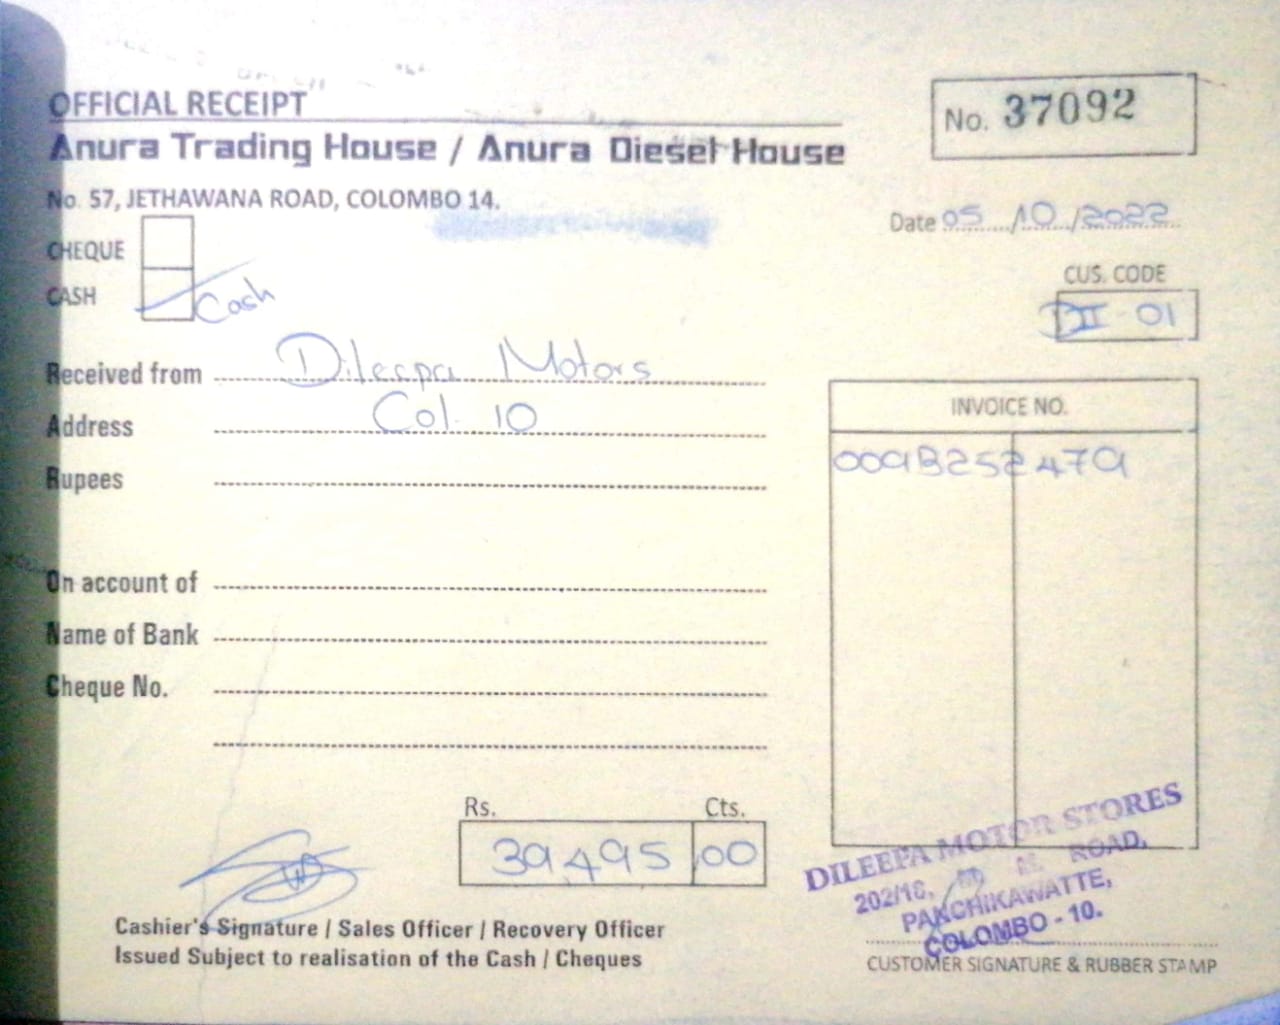 OFFICIAL RECEIPT
Anura Trading House / Anura Diesel House
No. 57, JETHAWANA ROAD, COLOMBO 14.
No. 37092
Date 05/10/2022
CHEQUE
CASH Cash
CUS. CODE
DII-01
Received from Dileepa Motors
Address Col. 10
Rupees
On account of
Name of Bank
Cheque No.
INVOICE NO.
009B252479
Rs. Cts.
39,495 00
Cashier's Signature / Sales Officer / Recovery Officer
Issued Subject to realisation of the Cash / Cheques
DILEEPA MOTOR STORES
202/18, ROAD,
PANCHIKAWATTE,
COLOMBO - 10.
CUSTOMER SIGNATURE & RUBBER STAMP